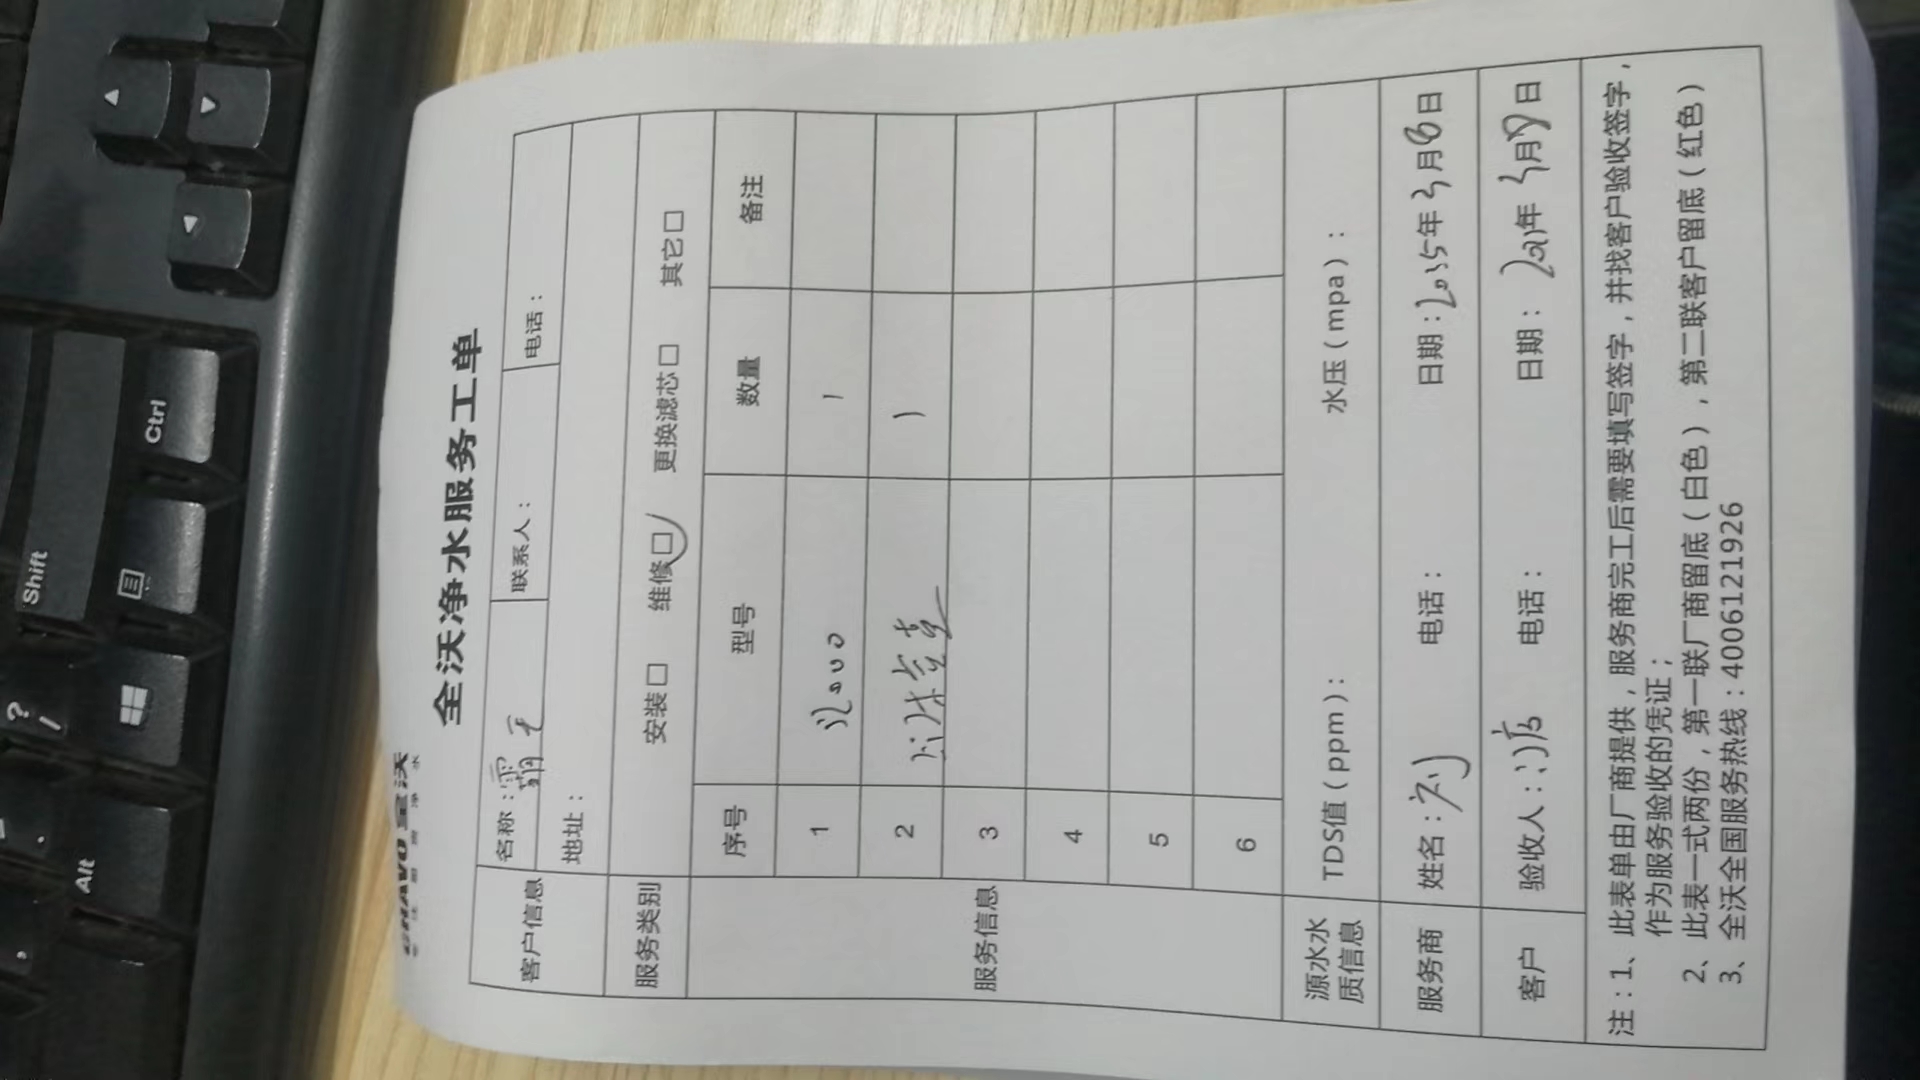 全沃净水服务工单
客户信息 名称：霸王 联系人： 电话：
地址：
服务类别 安装□ 维修□ 更换滤芯□ 其它□
服务信息 序号 型号 数量 备注
1 1
2 1
3
4
5
6
源水水质信息 TDS值（ppm）： 水压（mpa）：
服务商 姓名：刘 电话： 日期：年3月8日
客户 验收人： 电话： 日期：年3月日
注：1、此表单由厂商提供，服务商完工后需要填写签字，并找客户验收签字，
作为服务验收的凭证；
2、此表一式两份，第一联厂商留底（白色），第二联客户留底（红色）
3、全沃全国服务热线：4006121926
Shift
Ctrl
Alt